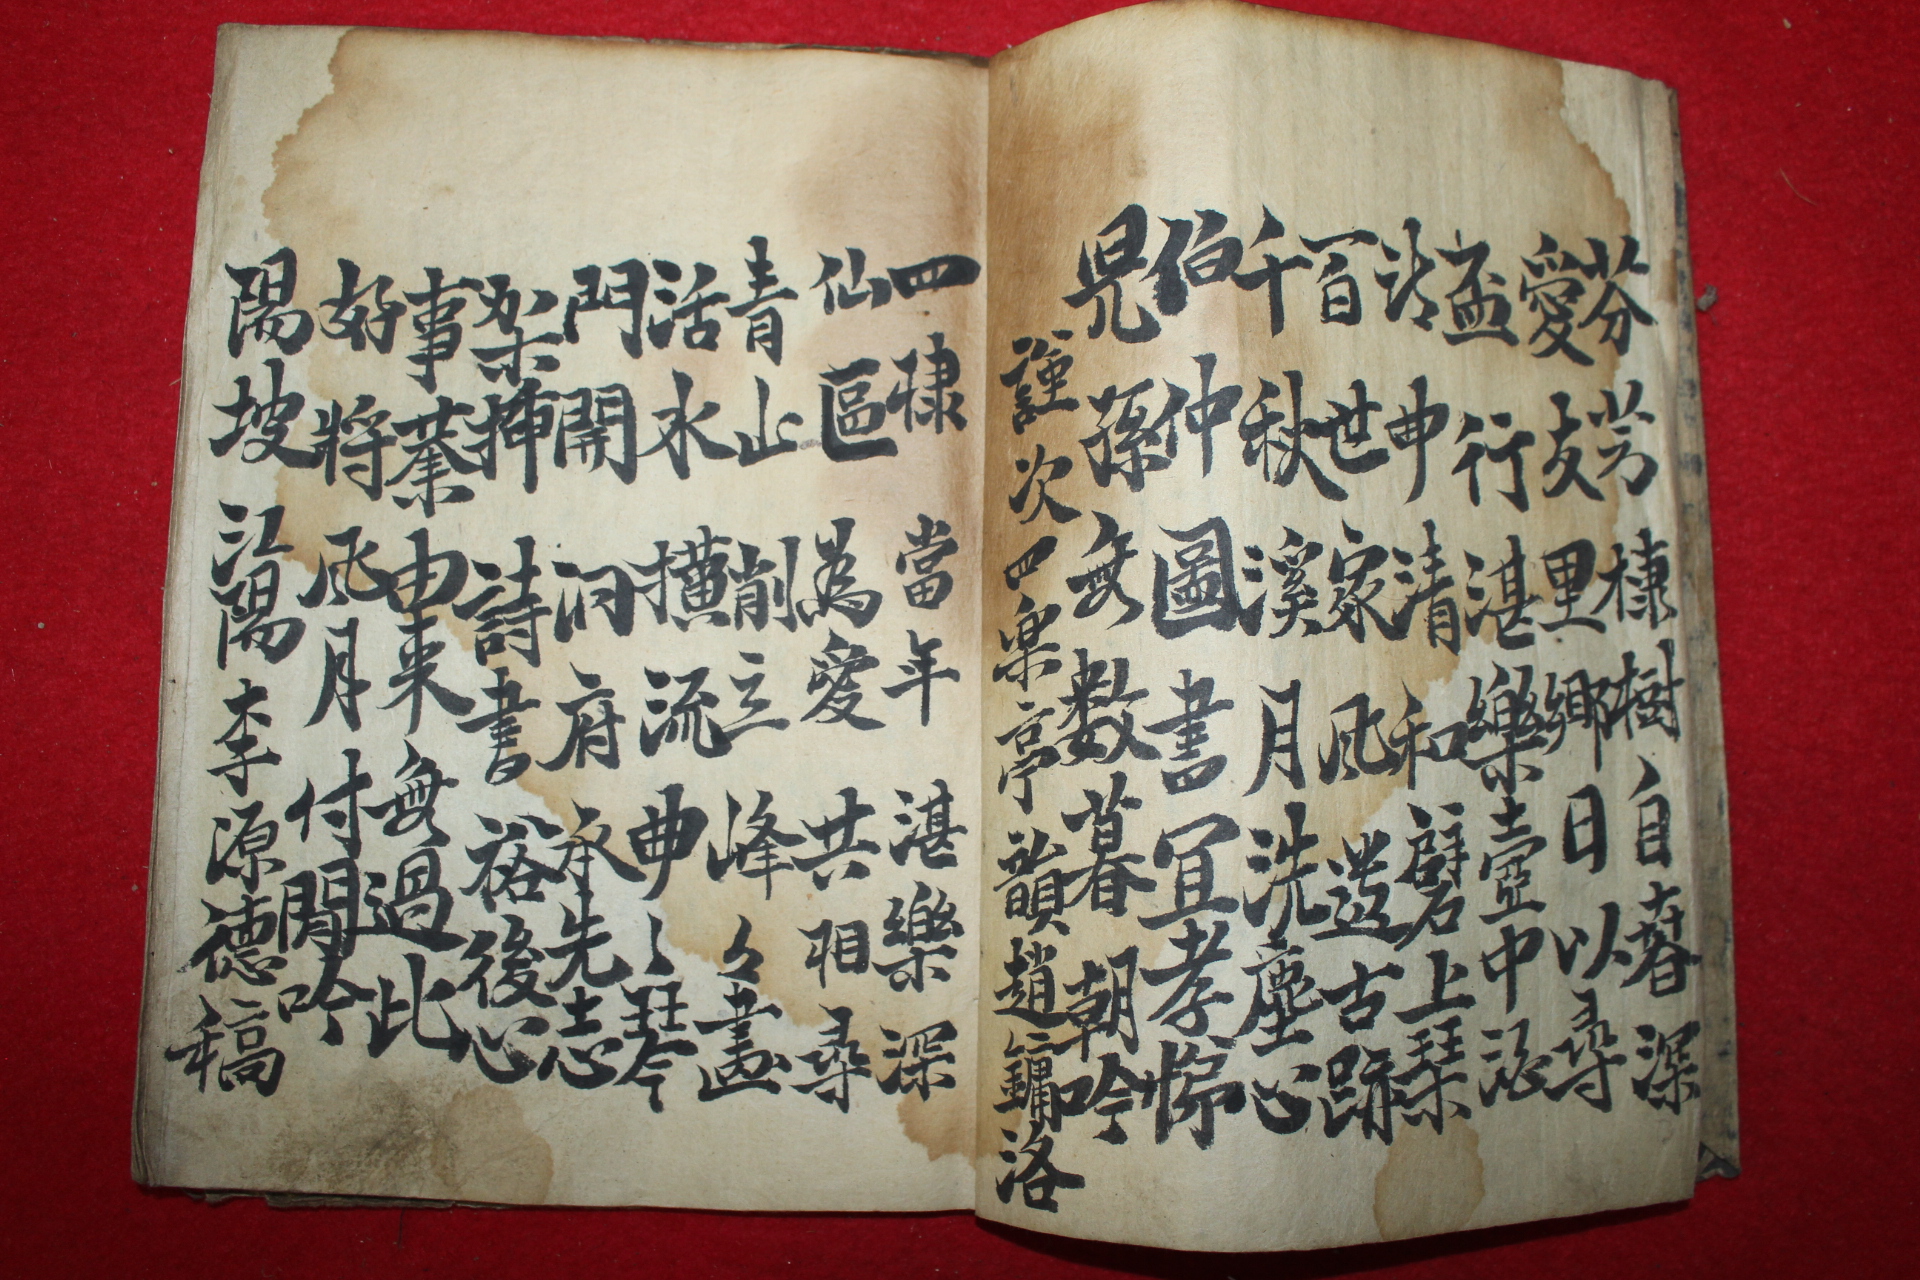 芬芳棣樹自春深
愛友里鄉日以尋
孟行湛樂壺中酒
沂申清和礕上琴
百世家風遊古跡
千秋溪月洗塵心
伯仲圖書冝孝悌
児孫無数暮朝吟
謹次四樂亭韻趙鏞洛
四棣當年湛樂深
仙區為愛共相尋
青山削立峰々畫
活水横流曲〻琴
門開洞府承先志
架揷詩書裕後心
事業由来無過此
好将风月付閒吟
陽坡江陽李源德稿